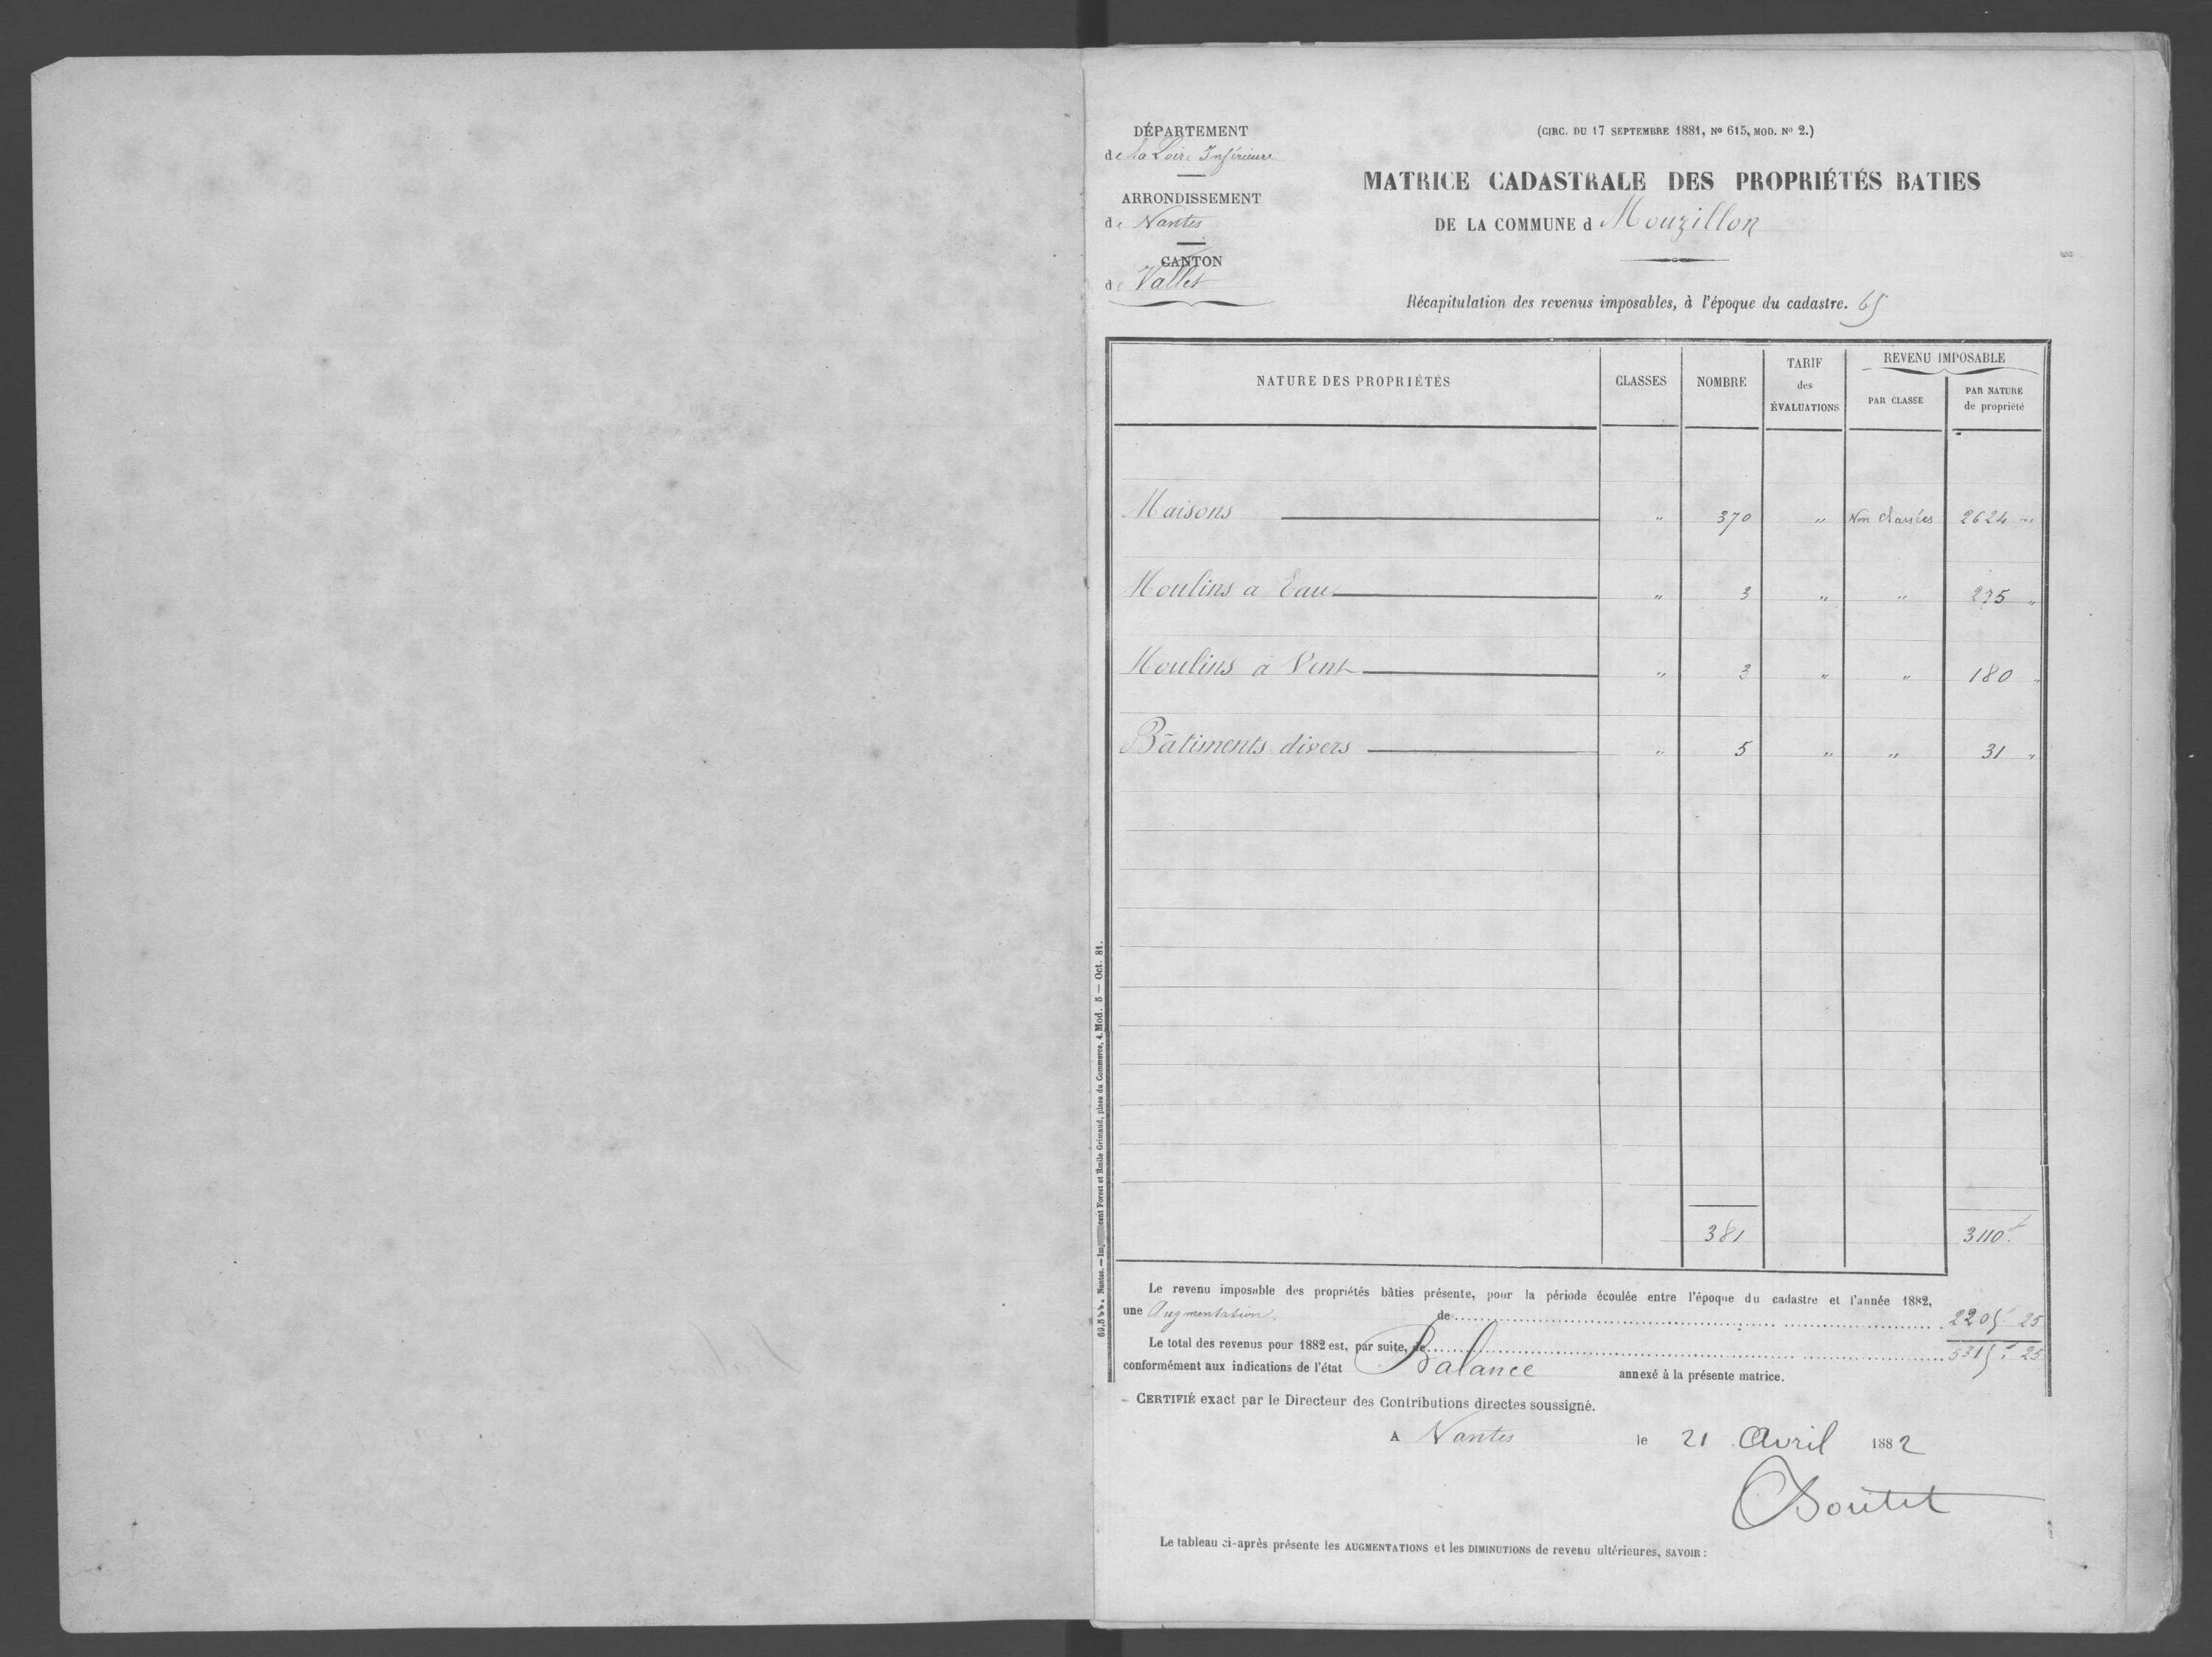 DÉPARTEMENT
de la Loire Inférieure
ARRONDISSEMENT
de Nantes
CANTON
de Vallet
(CIRC. DU 17 SEPTEMBRE 1881, No 615, MOD. No 2.)
MATRICE CADASTRALE DES PROPRIÉTÉS BATIES
DE LA COMMUNE d Mouzillon
Récapitulation des revenus imposables, à l'époque du cadastre. 65
NATURE DES PROPRIÉTÉS CLASSES NOMBRE TARIF des ÉVALUATIONS REVENU IMPOSABLE
PAR CLASSE PAR NATURE de propriété
Maisons " 370 " Non classées 2624 "
Moulins a Eau " 3 " " 275 "
Moulins à Vent " 3 " " 180 "
Bâtiments divers " 5 " " 31 "
381 3110 f
Le revenu imposable des propriétés bâties présente, pour la période écoulée entre l'époque du cadastre et l'année 1882,
une Augmentation de 2205 f 25
Le total des revenus pour 1882 est, par suite, de 5315 f 25
conformément aux indications de l'état Balance annexé à la présente matrice.
CERTIFIÉ exact par le Directeur des Contributions directes soussigné.
A Nantes le 21 Avril 1882
Le tableau ci-après présente les AUGMENTATIONS et les DIMINUTIONS de revenu ultérieures, SAVOIR :
Nantes. — Imp cent Forest et Emile Grimaud, place du Commerce, 4. Mod. 5 — Oct. 81.